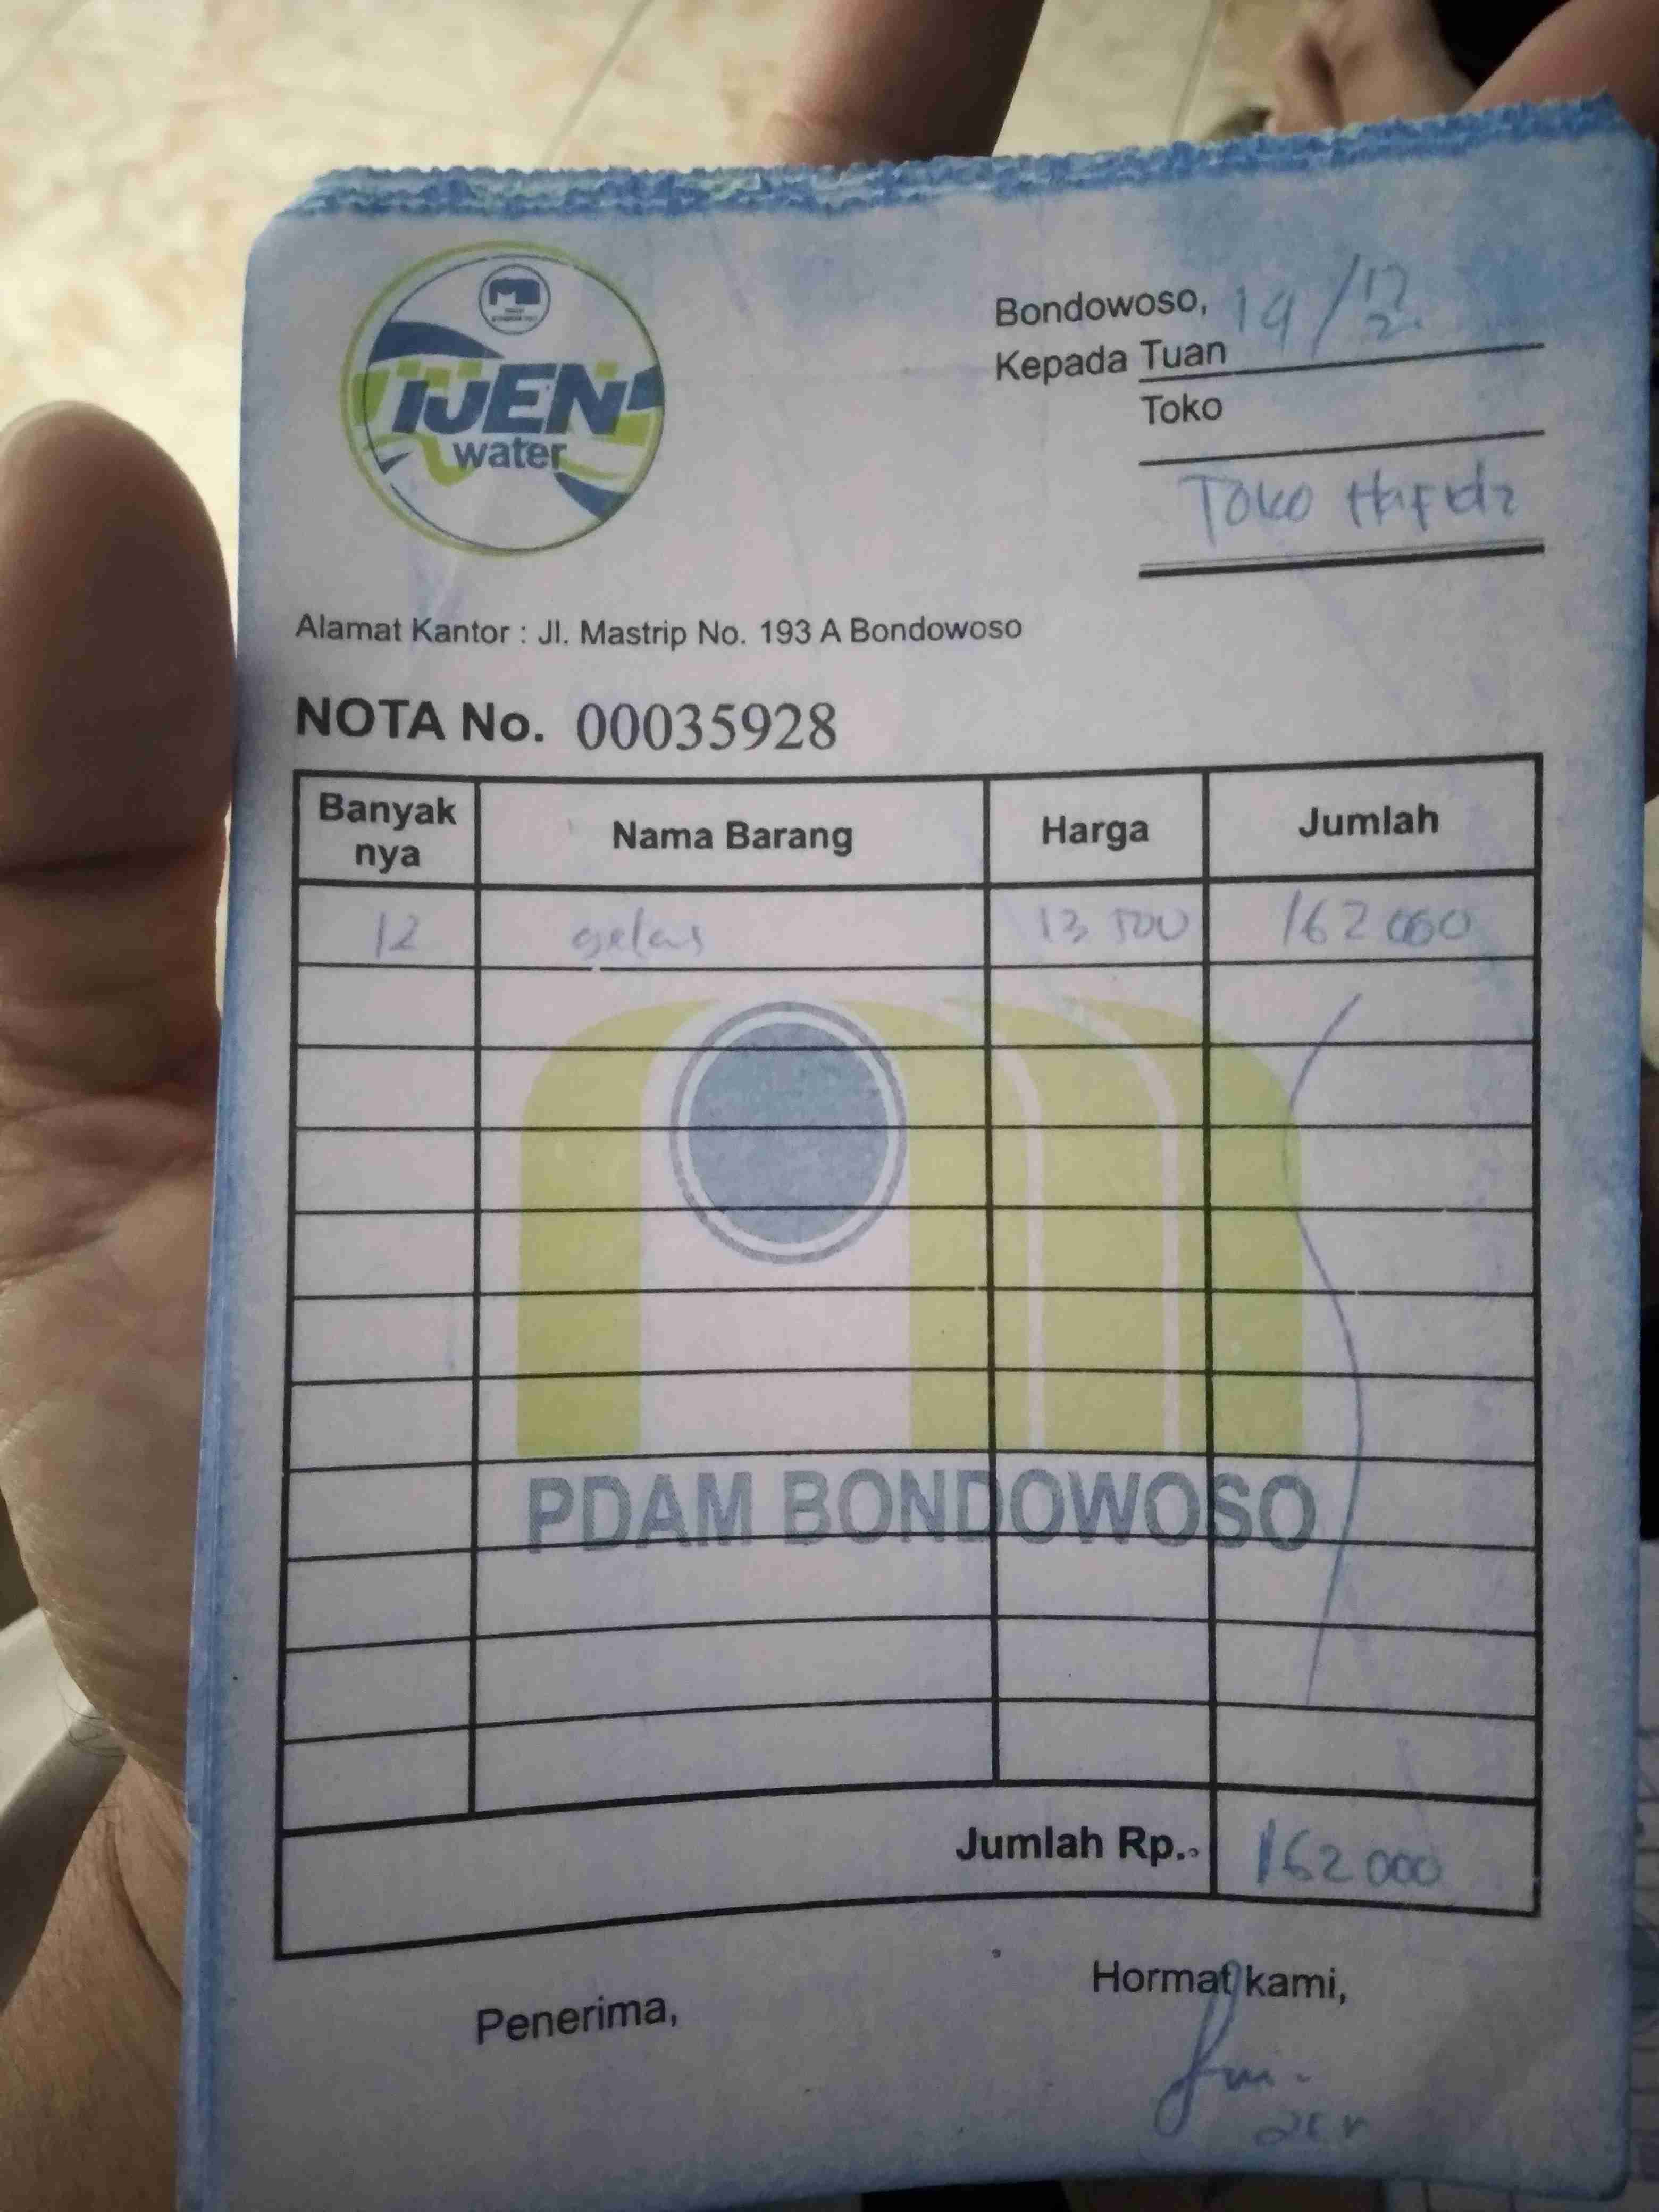 IJEN
water
Bondowoso, 19/12
Kepada Tuan
Toko
Toko Hafidz
Alamat Kantor : Jl. Mastrip No. 193 A Bondowoso
NOTA No. 00035928
Banyak nya Nama Barang Harga Jumlah
12 gelas 13 500 162 000
PDAM BONDOWOSO
Jumlah Rp. 162 000
Penerima, Hormat kami,